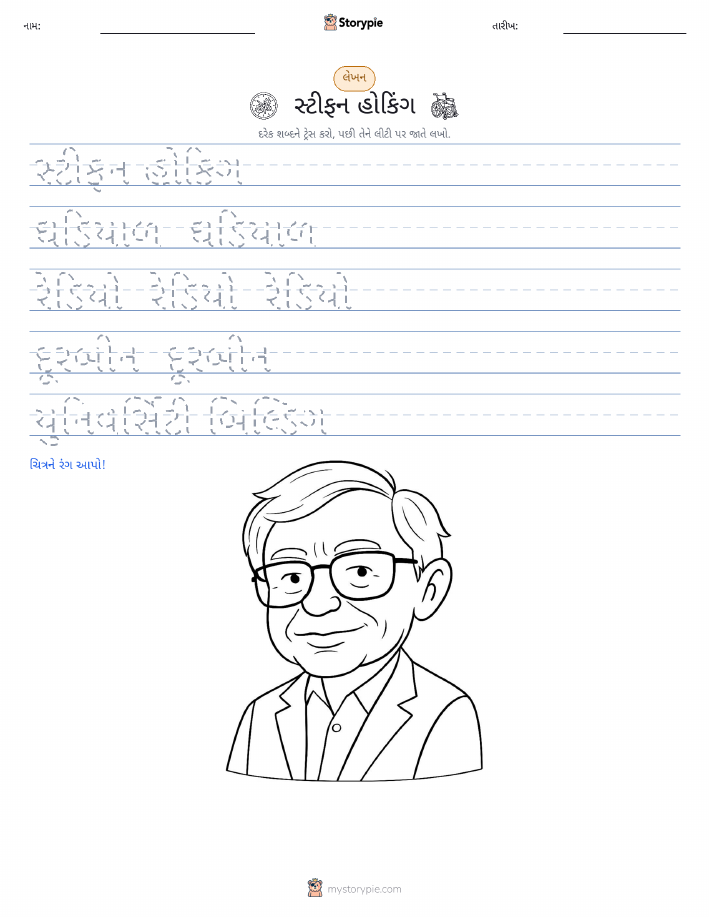 નામ:
Storypie
તારીખ:
લેખન
સ્ટીફન હોકિંગ
દરેક શબ્દને ટ્રેસ કરો, પછી તેને લીટી પર જાતે લખો.
સ્ટીફન હોકિંગ
ઘડિયાળ ઘડિયાળ
રેડિયો રેડિયો રેડિયો
દૂરબીન દૂરબીન
યુનિવર્સિટી બિલ્ડિંગ
ચિત્રને રંગ આપો!
mystorypie.com